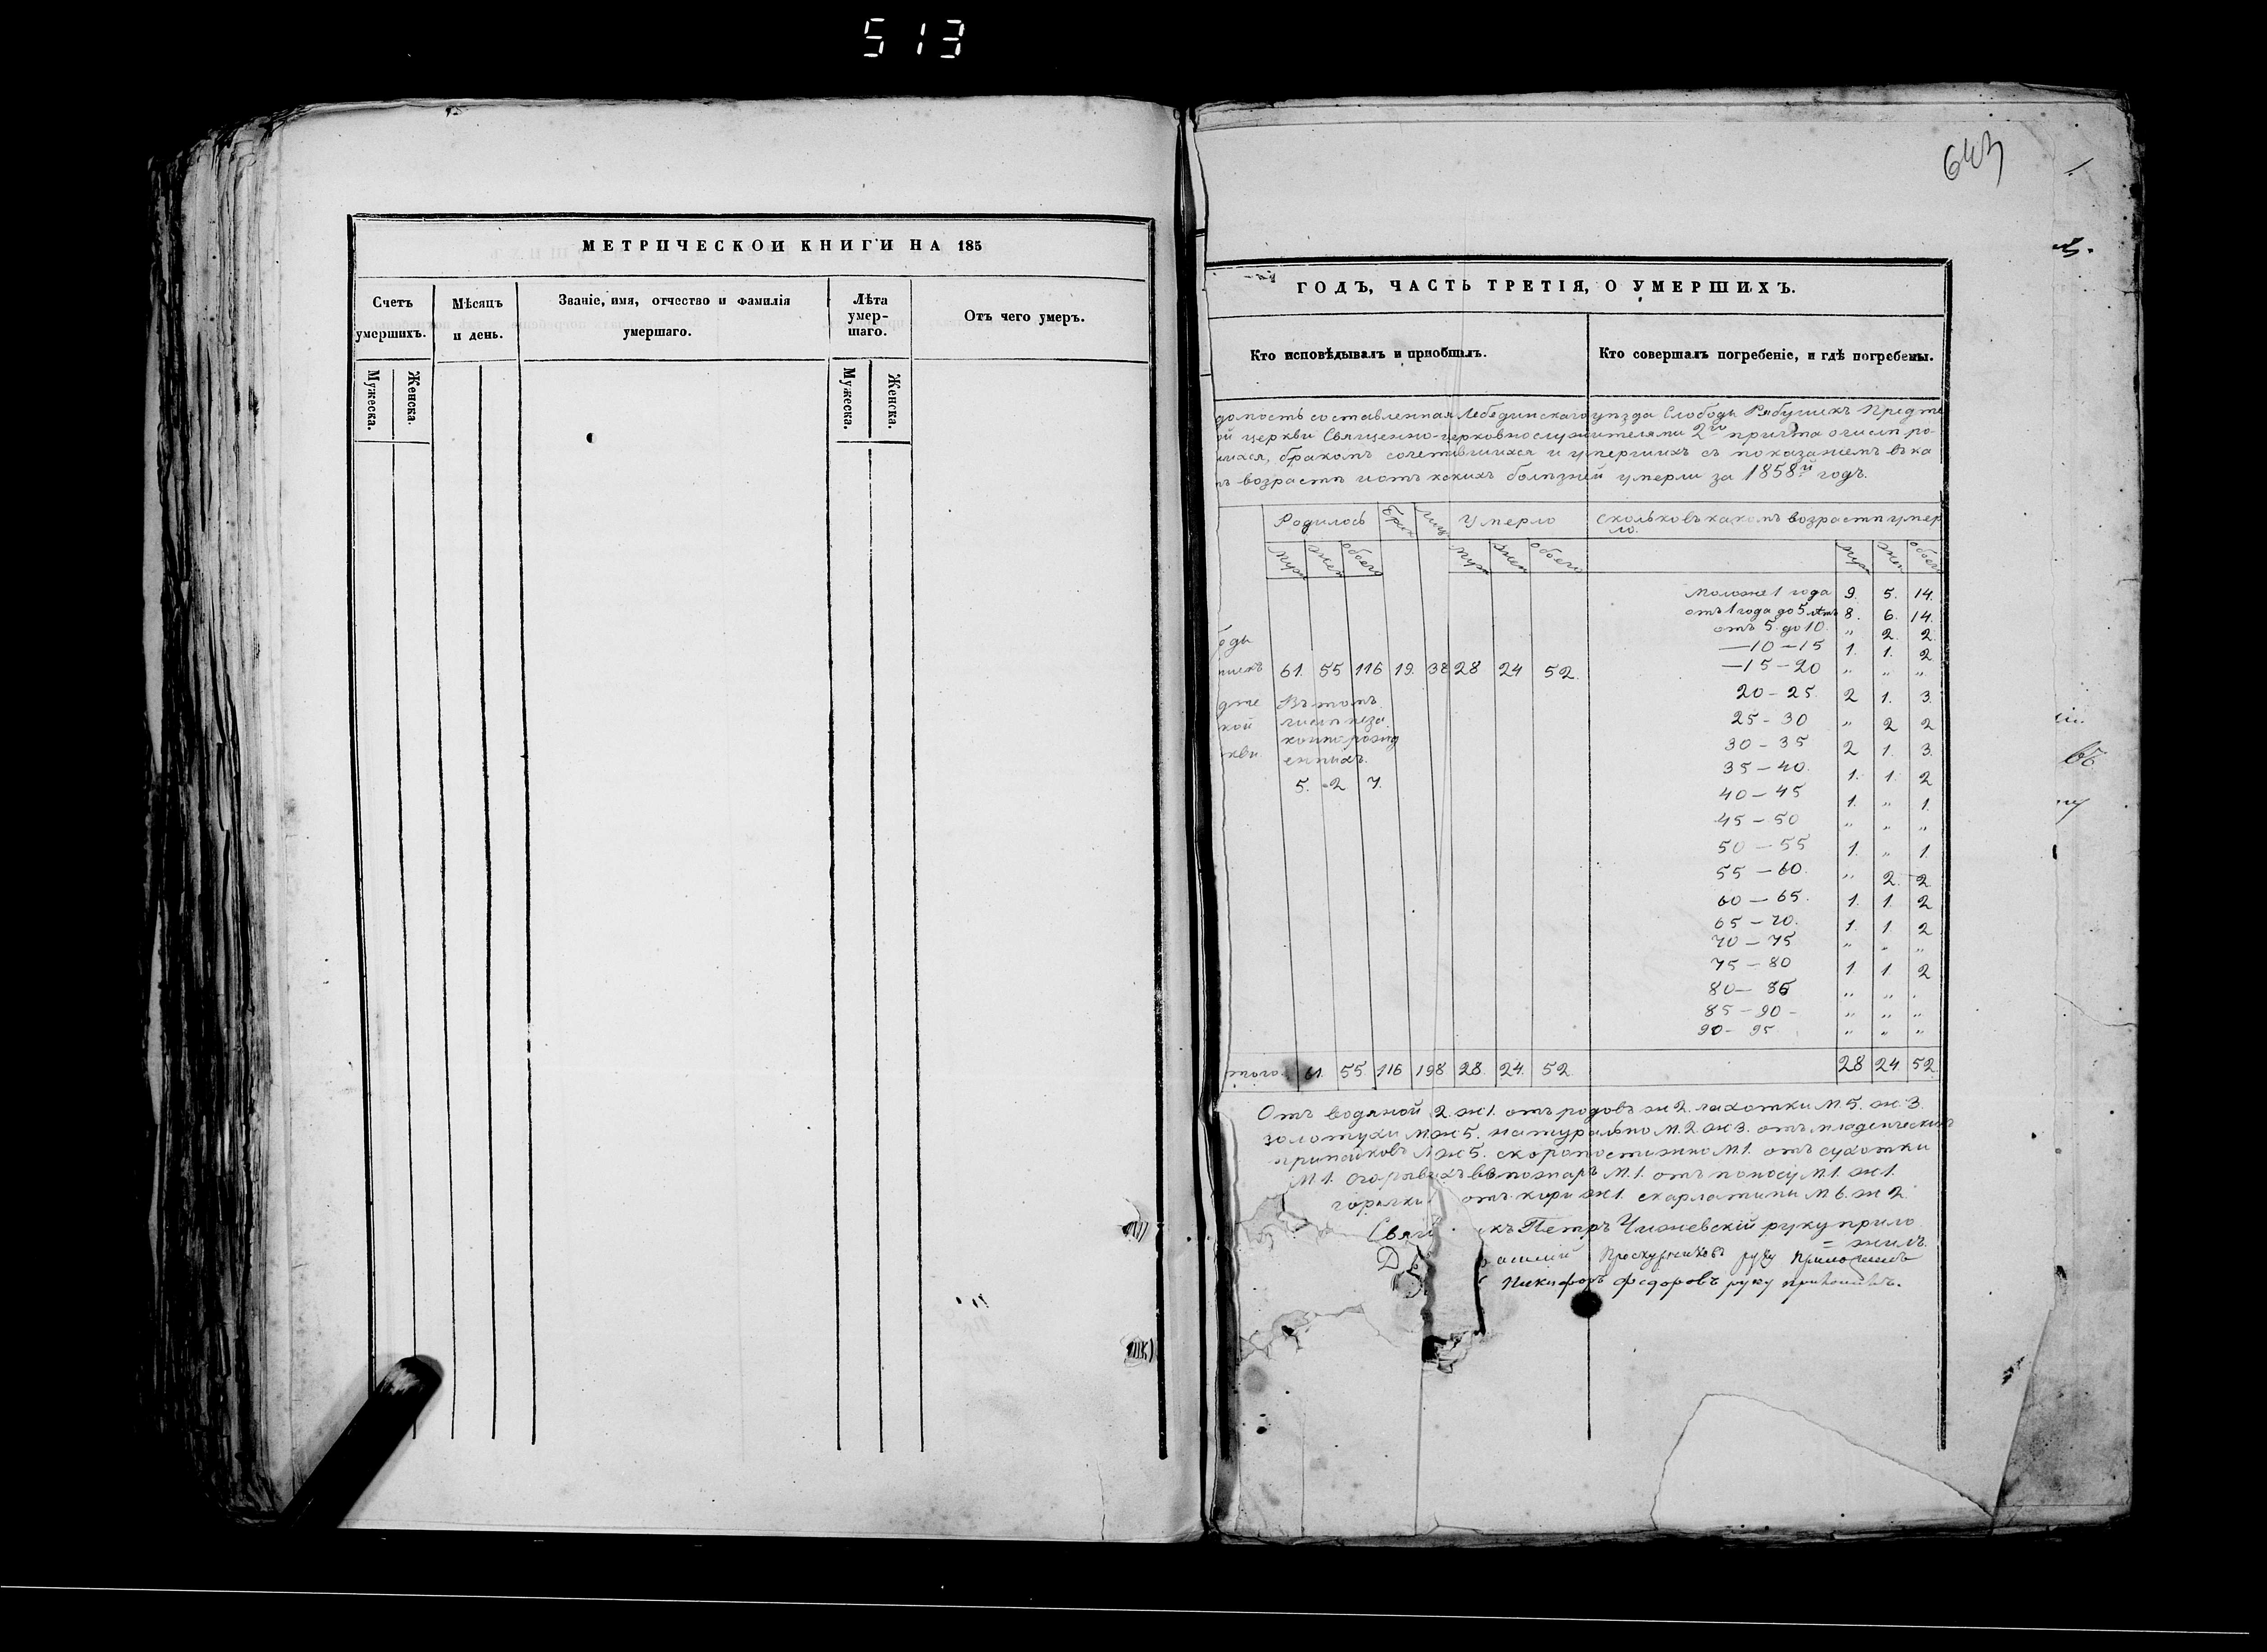 513
МЕТРИЧЕСКОЙ КНИГИ НА 185
Счетъ умершихъ.
Мѣсяцъ и день.
Званіе, имя, отчество и фамилія умершаго.
Лѣта умер-шаго.
Отъ чего умеръ.
Мужеска.
Женска.
Мужеска.
Женска.
643
ГОДЪ, ЧАСТЬ ТРЕТІЯ, О УМЕРШИХЪ.
Кто исповѣдывалъ и пріобщалъ.
Кто совершалъ погребеніе, и гдѣ погребены.
домость составленная Лебединскаго уѣзда Слободы Рябушекъ Предте
ой церкви Священно-церковнослужителями 2го причта о числѣ ро-
шихся, бракомъ сочетавшихся и умершихъ съ показаніемъ въ ка
мъ возрастѣ и отъ какихъ болѣзней умерли за 1858й годъ.
Родилось
Умерло
сколько въ какомъ возрастѣ умер
ло.
муж жен обоего
муж жен обоего
муж жен обоего
Моложе 1 года 9. 5. 14.
отъ 1 года до 5 лѣтъ 8. 6. 14.
отъ 5 до 10. " 2. 2.
—10—15 1. 1. 2
—15—20 " " "
20-25. 2 1. 3.
25-30 " 2 2
30-35 2 1. 3.
35-40. 1. 1. 2
40-45 1. " 1.
45-50 " " "
50-55 1. " 1.
55-60. " 2. 2.
60-65. 1. 1. 2
65-70. 1. 1. 2
70-75 " " "
75-80 1 1. 2
80-85 " "
85-90- " " "
90-95 " " "
оды
шекъ 61. 55 116 19. 38 28 24 52.
дте Въ томъ
кой числѣ неза
кви коннорожд
енныхъ.
5. 2 7.
того 61. 55 116 19 38 28. 24. 52
28 24 52
Отъ водяной 2. ж1. отъ родовъ ж2. чахотки м.5. ж.3.
золотухи м. ж5. натурально м.2. ж3. отъ младенческихъ
припадковъ ж5. скоропостижно м.1. отъ сухотки
м1. пожаръ м.1. отъ поносу м.1. ж.1.
горячки ж1. скарлатины м6. ж2.
Свящ къ Петръ Чижевскій руку прило
= жилъ.
асилій руку приложилъ
Никифоръ Федоровъ руку приложилъ.